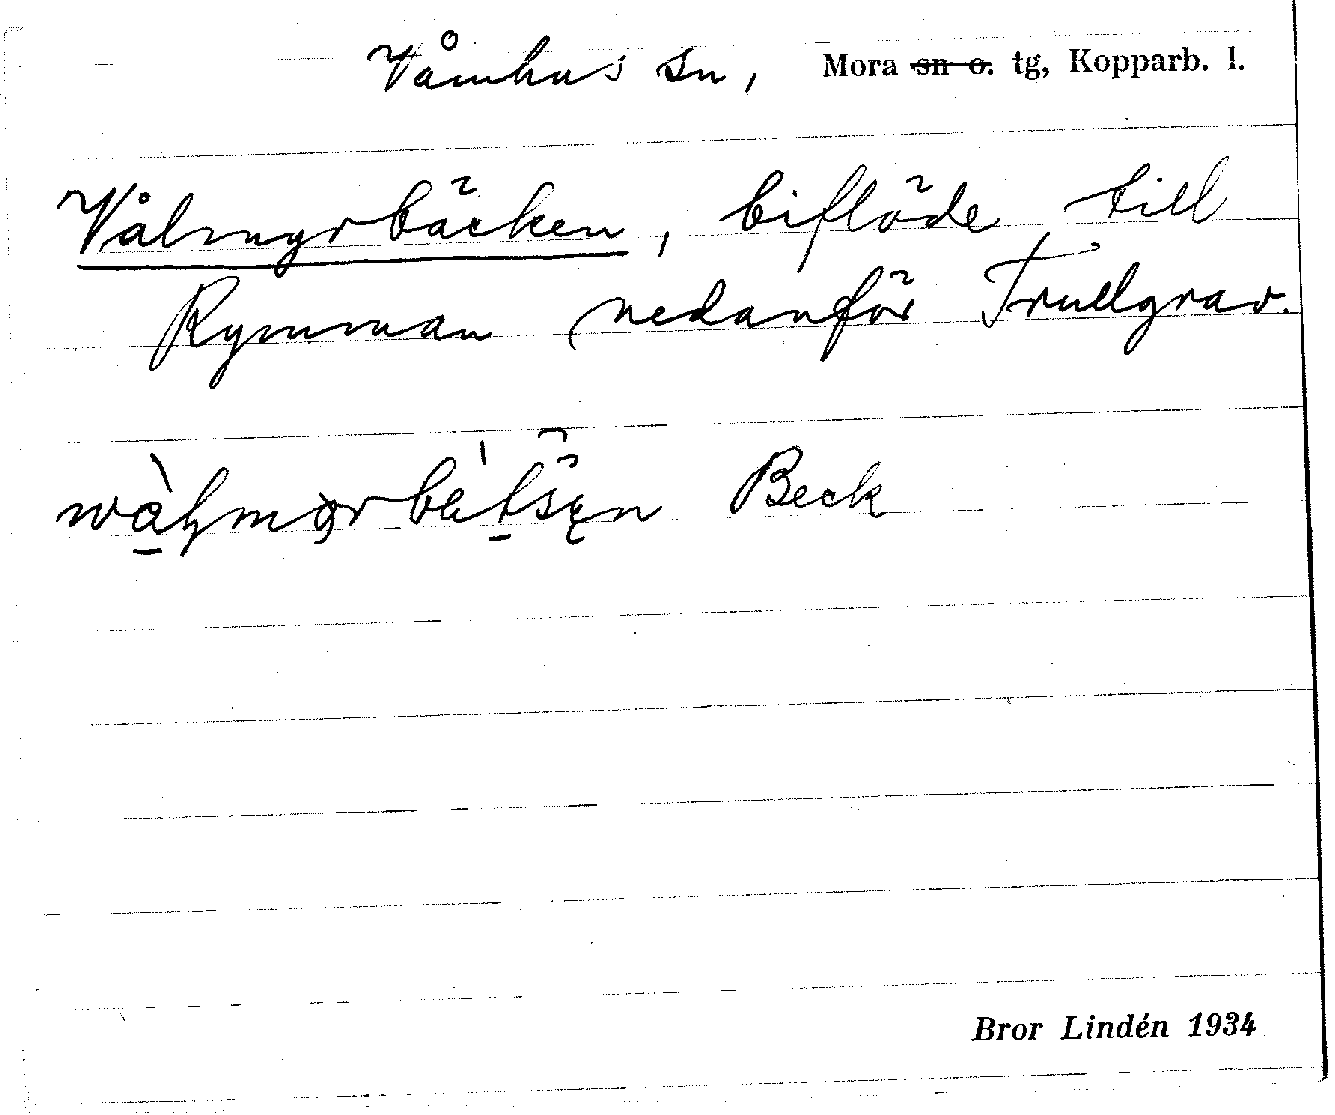 Våmhus sn, Mora sn o. tg, Kopparb. l.
Vålmyrbäcken, biflöde till
Rymman nedanför Trullgrav.
Beck
Bror Lindén 1934